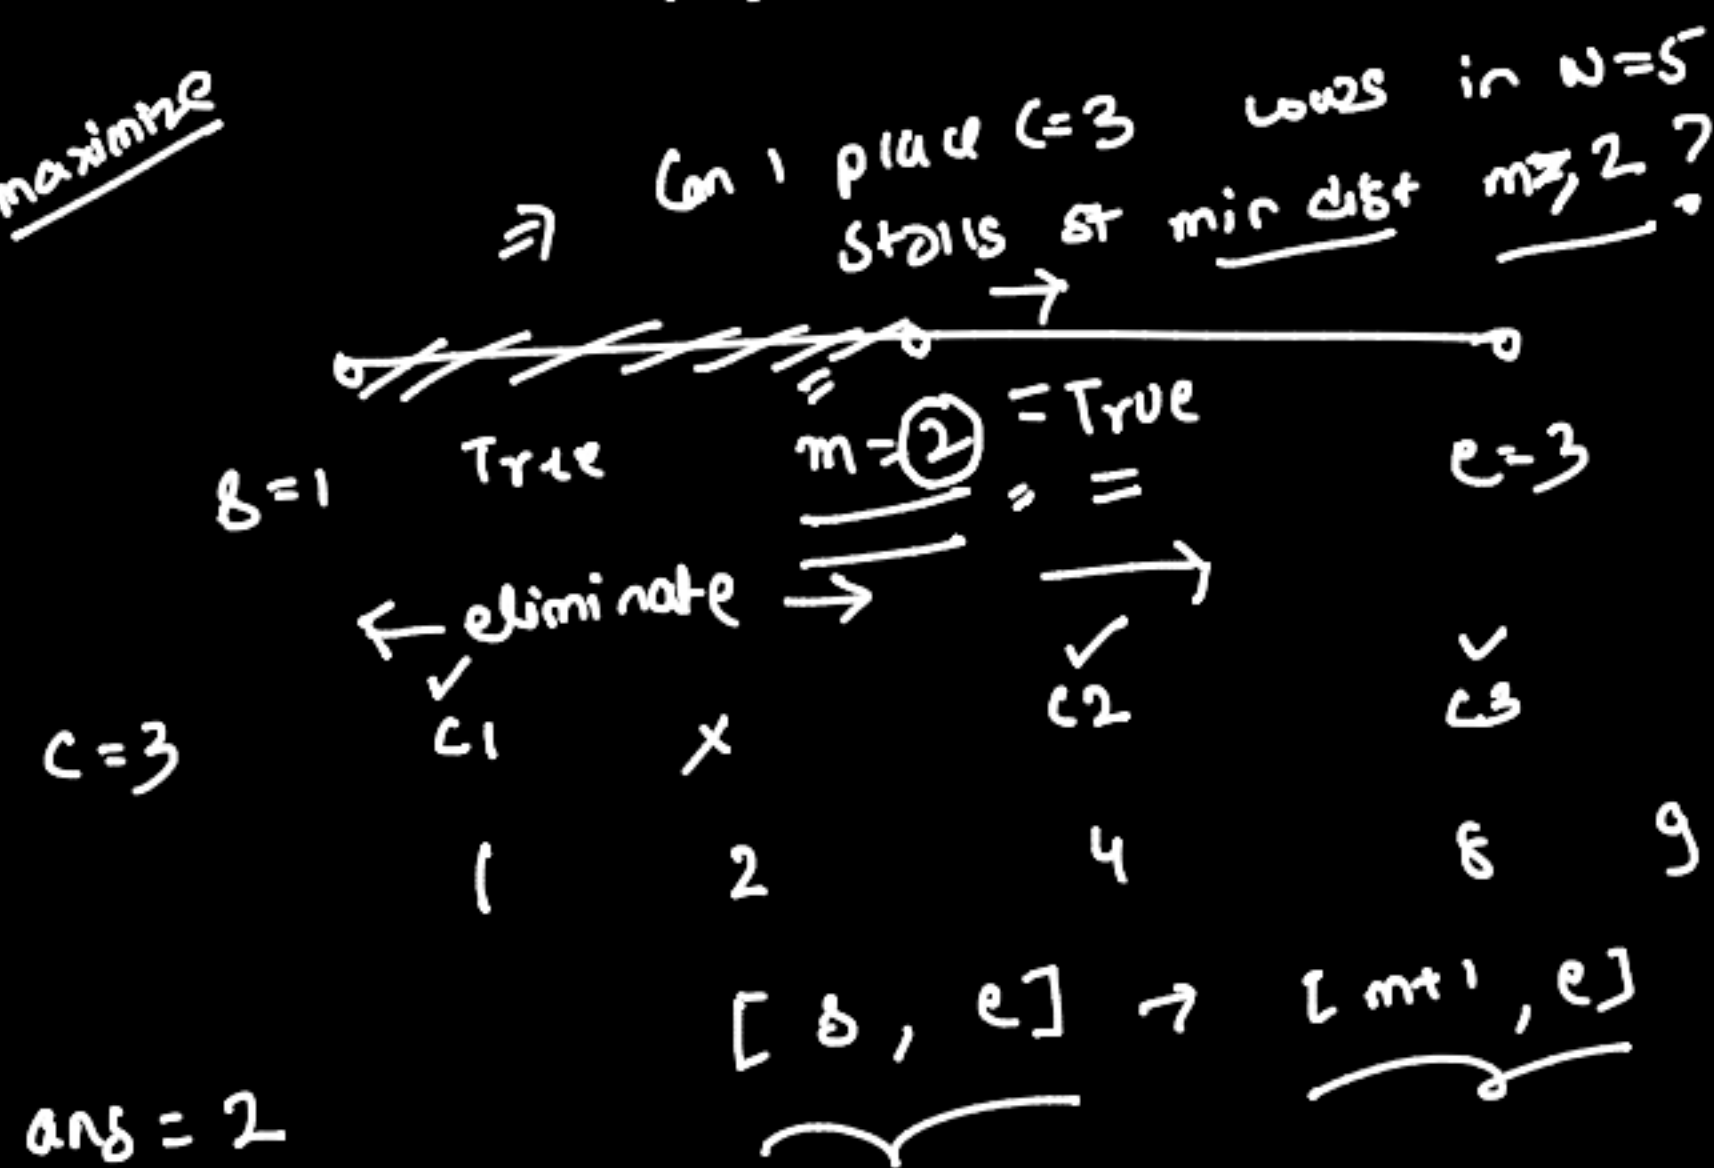 maximize
=> Can I place C=3 cows in N=5
stalls at min dist m>=2?
→
s=1 True m=2 = True e=3
← eliminate → →
✓ ✓ ✓
C=3 C1 x C2 C3
1 2 4 8 9
[s, e] → [m+1, e]
ans = 2